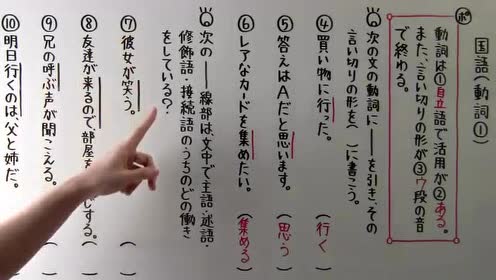 国語(動詞①)
ポ
動詞は①自立語で活用が②ある。
また、言い切りの形が③ウ段の音
で終わる。
次の文の動詞に――を引き、その
言い切りの形を( )に書こう。
④買い物に行った。(行く)
⑤答えはAだと思います。(思う)
⑥レアなカードを集めたい。(集める)
次の――線部は、文中で主語・述語・
修飾語・接続語のうちのどの働き
をしている?
⑦彼女が笑う。( )
⑧友達が来るので部屋を
しする。( )
⑨兄の呼ぶ声が聞こえる。( )
⑩明日行くのは、父と姉だ。( )